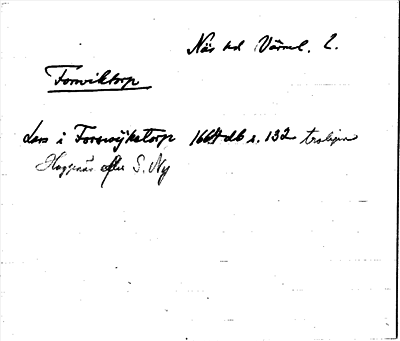 Näs hd Värml. l.
Forsviktorp
Lars i Forswijkstorp 1664 db s. 132 troligen
Huggenäs eller S. Ny